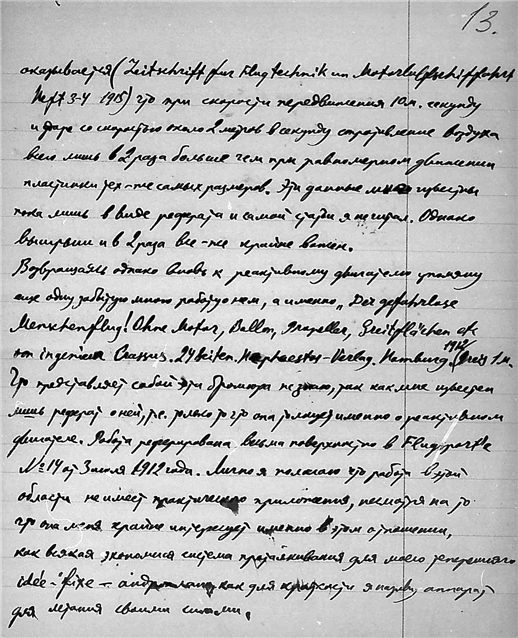 13.
оказывается (Zeitschrift fur Flugtechnik un Motorluftschiffahrt
Heft 3-4 1915) что при скорости передвижения 10 м. секунду
и со скоростью около 2 метров в секунду сопротивление воздуха
всего лишь в 2 раза больше чем при равномерном движении
пластинки тех-же самых размеров. Эти данные мне известны
пока лишь в виде реферата и самой статьи я не читал. Однако
выигрыш и в 2 раза все-же крайне важен.
Возвращаясь однако вновь к реактивному двигателю упомяну
еще одну забытую мною работу о нем, а именно „Der gefahrlose
Menschenflug! Ohne Motor, Ballon, Propeller, Breitflächen etc
von ingenieur 24 Seiten. Hephaestos-Verlag. Hamburg. 1912/ Preis 1 м.
Что представляет собой эта брошюра не знаю, так как мне известен
лишь реферат о ней, т.е. только то что она толкует именно о реактивном
двигателе. Работа реферирована весьма поверхностно в Flugsport'e
№ 14 от 3 июля 1912 года. Лично я полагаю что работа в этой
области не имеет практического приложения, несмотря на то
что она меня крайне интересует именно в этом отношении,
как всякая экономная система проталкивания для моего теперешнего
idée-fixe – как для краткости я назову аппарат
для летания своими силами.